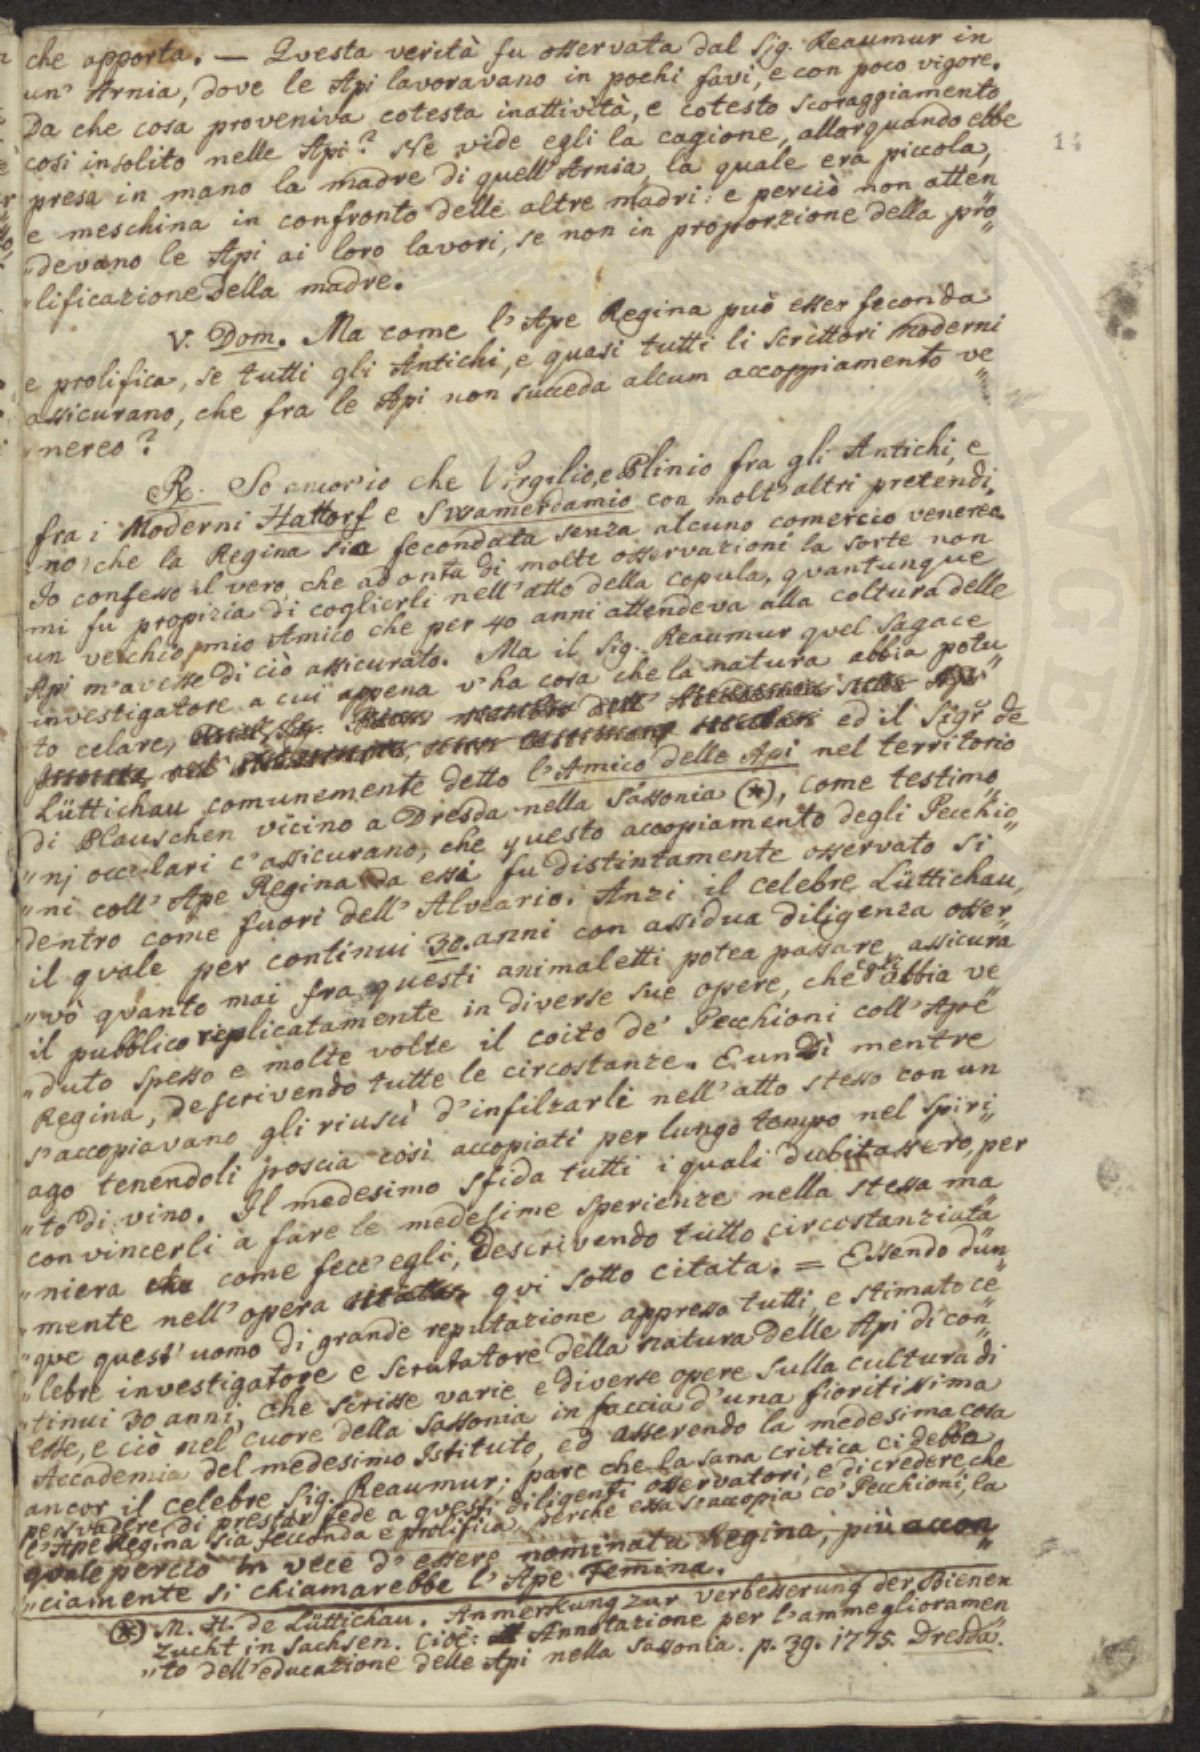 che apporta. — Questa verità fu osservata dal Sig. Reaumur in
un' Arnia, dove le Api lavoravano in pochi favi, e con poco vigore.
Da che cosa proveniva cotesta inattività, e cotesto scoraggiamento
così insolito nelle Api? Ne vide egli la cagione, allorquando ebbe
presa in mano la madre di quell' Arnia, la quale era piccola,
e meschina in confronto delle altre madri: e perciò non atten
"devano le Api ai loro lavori, se non in proporzione della pro"
"lificazione della madre.
V. Dom. Ma come l'Ape Regina può esser feconda
e prolifica, se tutti gli Antichi, e quasi tutti li scrittori moderni
assicurano, che fra le Api non succeda alcum accoppiamento ve"
"nereo?
R. So ancor'io che Virgilio, e Plinio fra gli Antichi, e
fra i Moderni Hattorf e Swamerdamio con molt'altri pretendi"
"no, che la Regina sia fecondata senza alcuno comercio venereo.
Io confesso il vero, che ad onta di molte osservazioni la sorte non
mi fu propizia di coglierli nell'atto della copula, quantunque
un vecchio mio Amico che per 40 anni attendeva alla coltura delle
Api m'avesse di ciò assicurato. Ma il Sig. Reaumur quel sagace
investigatore a cui appena v'ha cosa che la natura abbia potu"
to celare, ed il Sigr de
Lüttichau comunemente detto l'Amico delle Api nel territorio
di Plauschen vicino a Dresda nella Sassonia (*), come testimo"
"nj occulari c'assicurano, che questo accopiamento degli Pecchio"
"ni coll' Ape Regina da essi fu distintamente osservato sì
dentro come fuori dell' Alveario. Anzi il celebre Lüttichau,
il quale per continui 30. anni con assidua diligenza osser"
"vò quanto mai fra questi animaletti potea passare, assicura
il pubblico replicatamente in diverse sue opere, che abbia ve"
"duto spesso e molte volte il coito de' Pecchioni coll'Ape
Regina, descrivendo tutte le circostanze. E un dì mentre
s'accopiavano gli riuscì d'infilzarli nell'atto stesso con un
ago tenendoli poscia così accopiati per lungo tempo nel spiri"
"to di vino. Il medesimo sfida tutti i quali dubitassero, per
convincerli à fare le medesime sperienze nella stessa ma"
"niera come fece egli, descrivendo tutto circostanziata"
"mente nell'opera qui sotto citata. = Essendo dun"
"que quest'uomo di grande reputazione appresso tutti, e stimato ce"
"lebre investigatore e scrutatore della natura delle Api di con"
"tinui 30 anni, che scrisse varie e diverse opere sulla cultura di
esse, e ciò nel cuore della Sassonia in faccia d'una fioritissima
Accademia del medesimo Istituto, ed asserendo la medesima cosa
ancor il celebre Sig. Reaumur; pare che la sana critica ci debba
persvadere di prestar fede a questi diligenti osservatori, e di credere che
l'Ape Regina sia feconda e prolifica, perchè essa s'accopia co' Pecchioni, la
quale perciò in vece d'essere nominata Regina, più accon"
"ciamente si chiamarebbe l'Ape Femina.
(*) M. H. de Lüttichau. Anmerkung zur verbesserung der Bienen
zucht in Sachsen. Cioè: Annotazione per l'ammeglioramen
"to dell'educazione delle Api nella Sassonia. p. 39. 1775. Dresda.